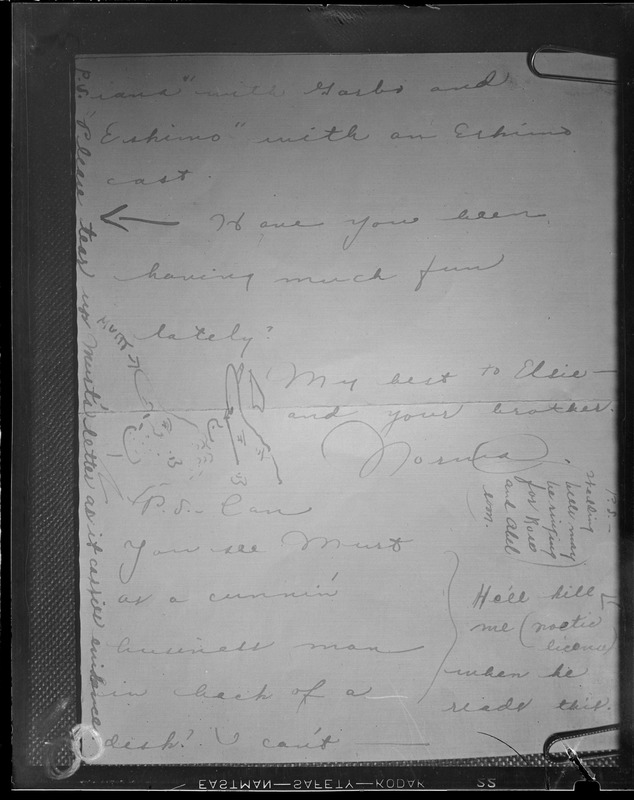 iana" with Garbo and
"Eskimo" with an Eskimo
cast.
Have you been
having much fun
lately?
My best to Elsie—
and your brother.
Norma
P.S.— Can
you see Murt
as a cunnin'
business man
in back of a
desk? I can't —
He'll kill
me (poetic
license)
when he
reads this.
P.S.—
Wedding
bells may
be ringing
for Kiro
and Abel
em.
P.S. Please tear up Murt's letter as it carries evidence
Murt
EASTMAN—SAFETY—KODAK 22